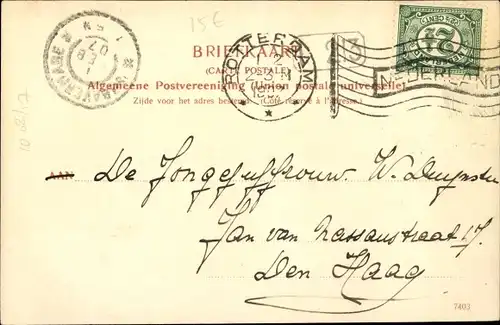 15€
BRIEFKAART
(CARTE POSTALE)
Algemeene Postvereeniging (Union postale universelle)
Zijde voor het adres bestemd. (Côté réservé à l'adresse.)
ROTTERDAM
13
NEDERLAND
2½
'S GRAVENHAGE
FEB
07
AAN De Jongejuffrouw. W. Duynstee
Jan van Nassaustraat 17.
Den Haag
7403